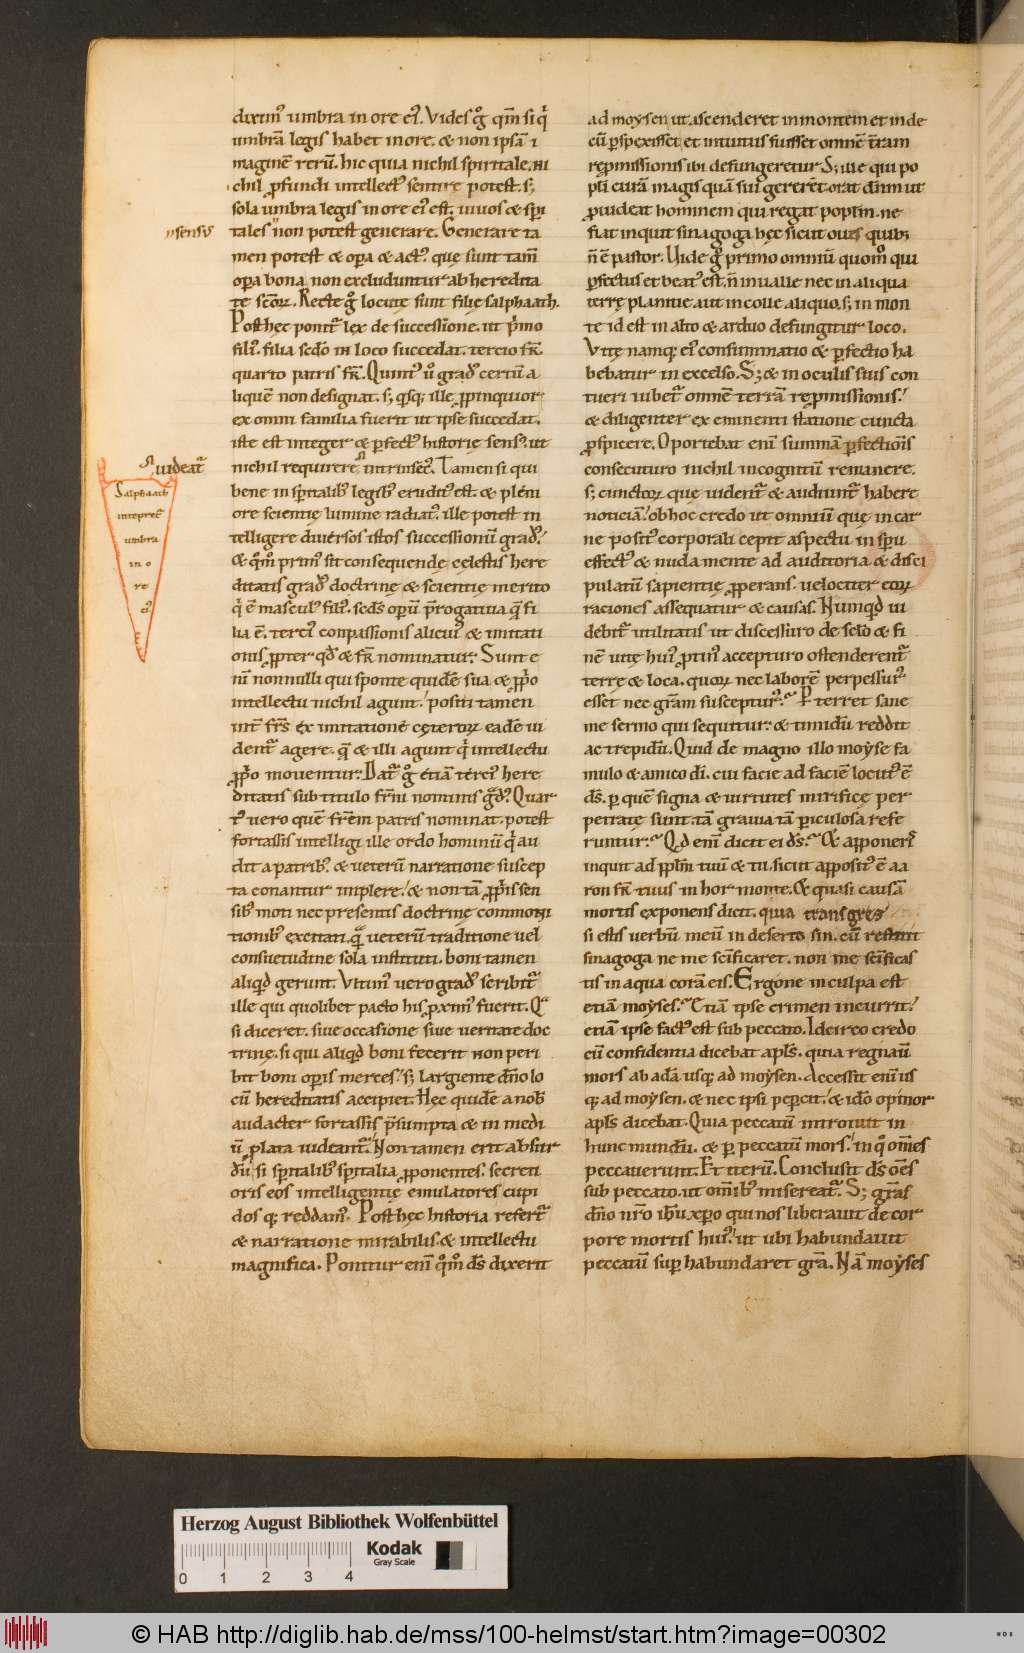 dixim᷒ umbra in ore ei᷒. Vides gͦ qm̄ si qͥ
umbrā legis habet in ore. & non ipsā i
maginē rerū. hic quia nichil spiritale. ni
chil ꝓfundi intellect᷒ sentire potest. s;
sola umbra legis in ore ei᷒ est. uiuos & spi
tales non potest generare. Generare ta
sensus
men potest & opa & act᷒. que sunt tam̄
opa bona non excluduntur ab heredita
te scōꝝ. Recte gͦ locute sunt filie salphaath.
Post hec ponit lex de successione. ut pͥmo
fili᷒. filia scdo in loco succedat. tercio fr̄.
quarto patris fr̄. Quint᷒ uͦ grad᷒ certū a
liquē non designat. s; qsq; ille ꝓpinquior
ex omni familia fuerit ut ipse succedat.
iste est integer & pfect᷒ historie sens᷒. ut
nichil requirere intrinsec᷒. Tamen si qui
si uideat᷒
bene in spitalib᷒ legib᷒ erudit᷒ est. & plēni
Salphaath
intepret᷒
umbra
in o
re
ei᷒
ore scientie lumine radiat᷒. ille potest in
telligere diuersos istos successionū grad᷒.
& qm̄ prim᷒ sit consequende celestis here
ditatis grad᷒ doctrine & scientie merito
qͥ ē mascul᷒ fili᷒. scds opū prerogatiua q̄ fi
lia ē. terci᷒ conpassionis alicui᷒ & imitati
onis ꝓpter qd & fr̄ nominatur. Sunt e
nī nonnulli qui sponte quidē sua & ꝓpͥo
intellectu nichil agunt. positi tamen
int̄ fr̄s ex imitatione ceteroꝝ eadē ui
dent᷒ agere. q̄ & illi agunt qͥ intellectu
ꝓpͥo mouentur. Dat᷒ gͦ etiā terci᷒ here
ditatis sub titulo fr̄ni nominis grad᷒. Quar
t᷒ uero quē fr̄em patris nominat. potest
fortassis intelligi ille ordo hominū qͥ au
dita patrib᷒. & ueterū narratione suscep
ta conantur implere. & non tā ꝓpͥis sen
sib᷒ moti nec presentis doctrine commoni
tionib᷒ excitati. q̄ ueterū traditione uel
consuetudine sola instituti. boni tamen
aliqd gerunt. Vltim᷒ uero grad᷒ scribit᷒
ille qui quolibet pacto his ꝓxim᷒ fuerit. Qͣ
si diceret. siue occasione siue ueritate doc
trine. si qui aliqd boni fecerit non peri
bit boni opis merces. s; largiente dn̄o lo
cū hereditatis accipiet. Hec quidē a nob᷒
audacter fortassis p̄sumpta & in medi
ū plata uideant᷒. Non tamen erit absur
dū si spitalib᷒ spitalia ꝓponentes. secreti
oris eos intelligentie emulatores cupi
dos q; reddam᷒. Post hec historia refert᷒
& narratione mirabilis. & intellectu
magnifica. Ponitur enī qm̄ ds̄ dixerit
ad moysen ut ascenderet in montem et inde
cū pspexisset et intuitus fuisset omnē tr̄am
repmissionis ibi defungeretur. S; ille qui po
pli curā magis quā sui gereret. orat dn̄m ut
ꝓuideat hominem qui regat poplm. ne
fiat inquit sinagoga hec sicut oues quib;
n̄ ē pastor. Vide gͦ primo omniū quomͦ qui
pfectus et beat᷒ est. n̄ in ualle nec in aliqua
terre planitie. aut in colle aliquo. s; in mon
te id est in alto & arduo defungitur loco.
Vite namq; ei᷒ consummatio & pfectio ha
bebatur in excelso. S; & in oculis suis con
tueri iubet᷒ omnē terrā repmissionis.
& diligenter ex eminenti statione cuncta
ꝓspicere. Oportebat enī summā pfectiōis
consecuturo nichil incognitū remanere.
s; cunctoꝝ que uident᷒ & audiunt᷒ habere
noticiā. ob hoc credo ut omniū que in car
ne posit᷒ corporali cepit aspectu in spu
effect᷒ & nuda mente ad auditoria & disci
pulatū sapientie ꝓperans. uelociter eoꝝ
raciones assequatur & causas. Numqd ui
debit᷒ utilitatis ut discessuro de sclo & fi
nē uite hui᷒ ꝓtin᷒ accepturo ostenderent᷒
terre & loca. quoꝝ nec laborē perpessur᷒
esset nec gr̄am susceptur᷒. Pterret sane
me sermo qui sequitur. & timidū reddit
ac trepidū. Quid de magno illo moyse fa
mulo & amico di. cui facie ad faciē locut᷒ ē
ds̄. p quē signa & uirtutes mirifice per
petrate sunt. tā grauia tā piculosa refe
runtur. Qd enī dicit ei ds̄. & apponeris
inquit ad pplm tuū & tu. sicut apposit᷒ ē aa
ron fr̄ tuus in hor monte. & quasi causā
mortis exponens dicit. quia transgres
si estis uerbū meū in deserto sin. cū restitit
sinagoga ne me scificaret. non me scificas
tis in aqua corā eis. Ergone in culpa est
etiam moyses. Etiā ipse crimen incurrit.
etiā ipse fact᷒ est sub peccato. Ideirco credo
cū confidentia dicebat apls̄. quia regnauit
mors ab adā usq; ad moysen. Accessit enī us
q; ad moysen. & nec ipsi pepercit. & idō opinor
apls̄ dicebat. Quia peccatū introiuit in
hunc mundū. & p peccatū mors. in qͦ om̄es
peccauerunt. Et iterū. Conclusit ds̄ om̄s
sub peccato. ut om̄ib᷒ misereat᷒. S; gr̄as
dn̄o nr̄o ihū xpo qui nos liberauit de cor
pore mortis hui᷒. ut ubi habundauit
peccatū sup habundaret gr̄a. Nā moyses
Herzog August Bibliothek Wolfenbüttel
Kodak
Gray Scale
0 1 2 3 4
© HAB http://diglib.hab.de/mss/100-helmst/start.htm?image=00302